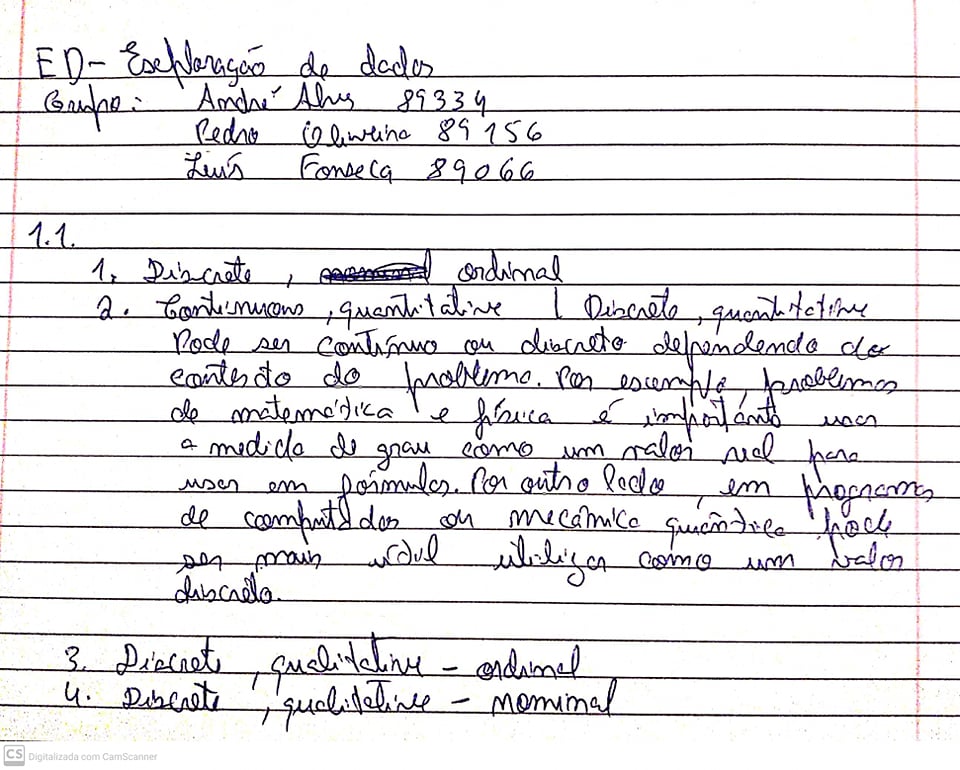 ED - Exploração de dados
Grupo: André Alves 89334
Pedro Oliveira 89156
Luís Fonseca 89066
1.1.
1. Discrete, ordinal
2. Continuous, quantitative | Discrete, quantitative
Pode ser contínuo ou discreto dependendo do
contexto do problema. Por exemplo, problemas
de matemática e física é importante usar
a medida de grau como um valor real para
usar em fórmulas. Por outro lado, em programas
de computador ou mecânica quântica pode
ser mais útil utilizar como um valor
discreto.
3. Discrete, qualitative - ordinal
4. Discrete, qualitative - nominal
CS Digitalizada com CamScanner